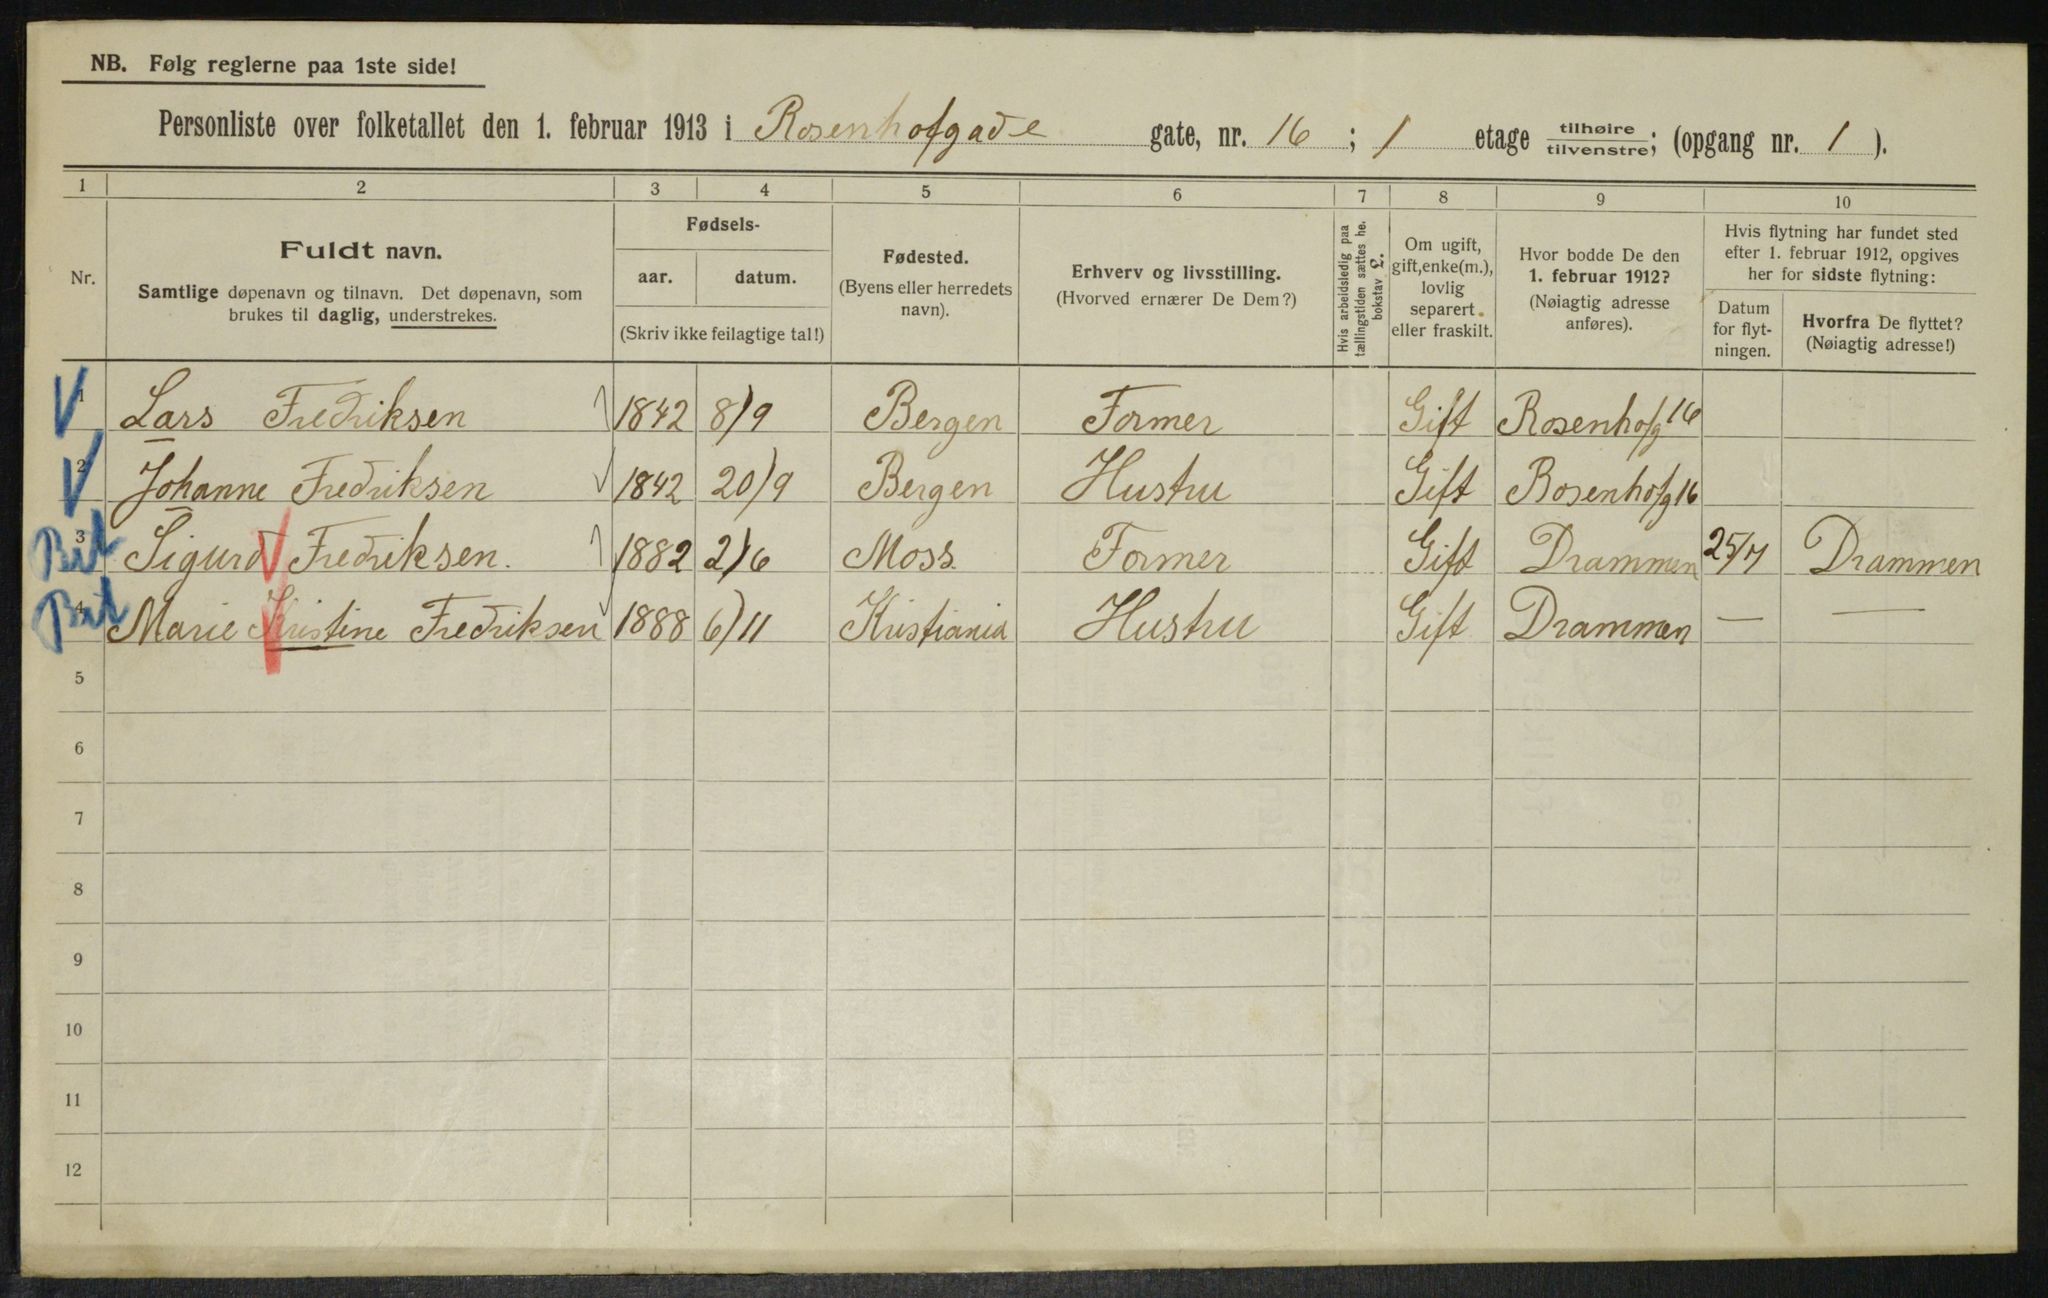 NB. Følg reglerne paa 1ste side!
Personliste over folketallet den 1. februar 1913 i Rosenhofgade gate, nr. 16 ; 1 etage tilhøire / tilvenstre; (opgang nr. 1 ).
1 2 3 4 5 6 7 8 9 10
Nr.
Fuldt navn.
Samtlige døpenavn og tilnavn. Det døpenavn, som
brukes til daglig, understrekes.
Fødsels-
aar. datum.
(Skriv ikke feilagtige tal!)
Fødested.
(Byens eller herredets
navn).
Erhverv og livsstilling.
(Hvorved ernærer De Dem?)
Hvis arbeidsledig paa
tællingstiden sættes he.
bokstav L.
Om ugift,
gift, enke(m.),
lovlig
separert
eller fraskilt.
Hvor bodde De den
1. februar 1912?
(Nøiagtig adresse
anføres).
Hvis flytning har fundet sted
efter 1. februar 1912, opgives
her for sidste flytning:
Datum
for flyt-
ningen.
Hvorfra De flyttet?
(Nøiagtig adresse!)
1 Lars Fredriksen 1842 8/9 Bergen Former Gift Rosenhofg 16
2 Johanne Fredriksen 1842 20/9 Bergen Hustru Gift Rosenhofg 16
3 Sigurd Fredriksen. 1882 2/6 Moss Former Gift Drammen 25/7 Drammen
4 Marie Kristine Fredriksen 1888 6/11 Kristiania Hustru Gift Drammen — —
5
6
7
8
9
10
11
12